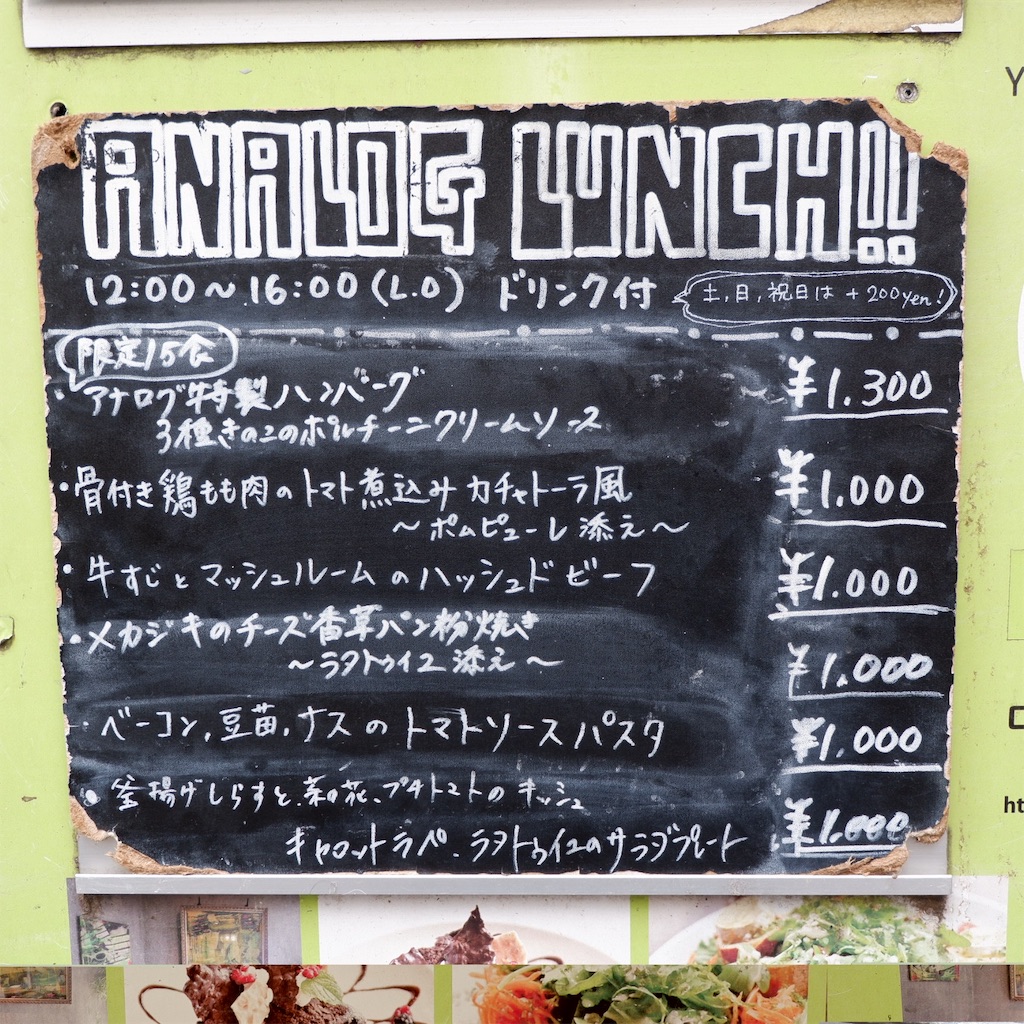 ANALOG LUNCH!!
12:00～16:00(L.O) ドリンク付
土,日,祝日は +200yen!
限定15食
・アナログ特製ハンバーグ ¥1.300
3種きのこのポルチーニクリームソース
・骨付き鶏もも肉のトマト煮込みカチャトーラ風 ¥1.000
～ポムピューレ添え～
・牛すじとマッシュルームのハッシュドビーフ ¥1.000
・メカジキのチーズ香草パン粉焼き
～ラタトゥイユ添え～ ¥1.000
・ベーコン,豆苗,ナスのトマトソースパスタ ¥1.000
・釜揚げしらすと、菜の花、プチトマトのキッシュ
キャロットラペ、ラタトゥイユのサラダプレート ¥1.000
Y
ht